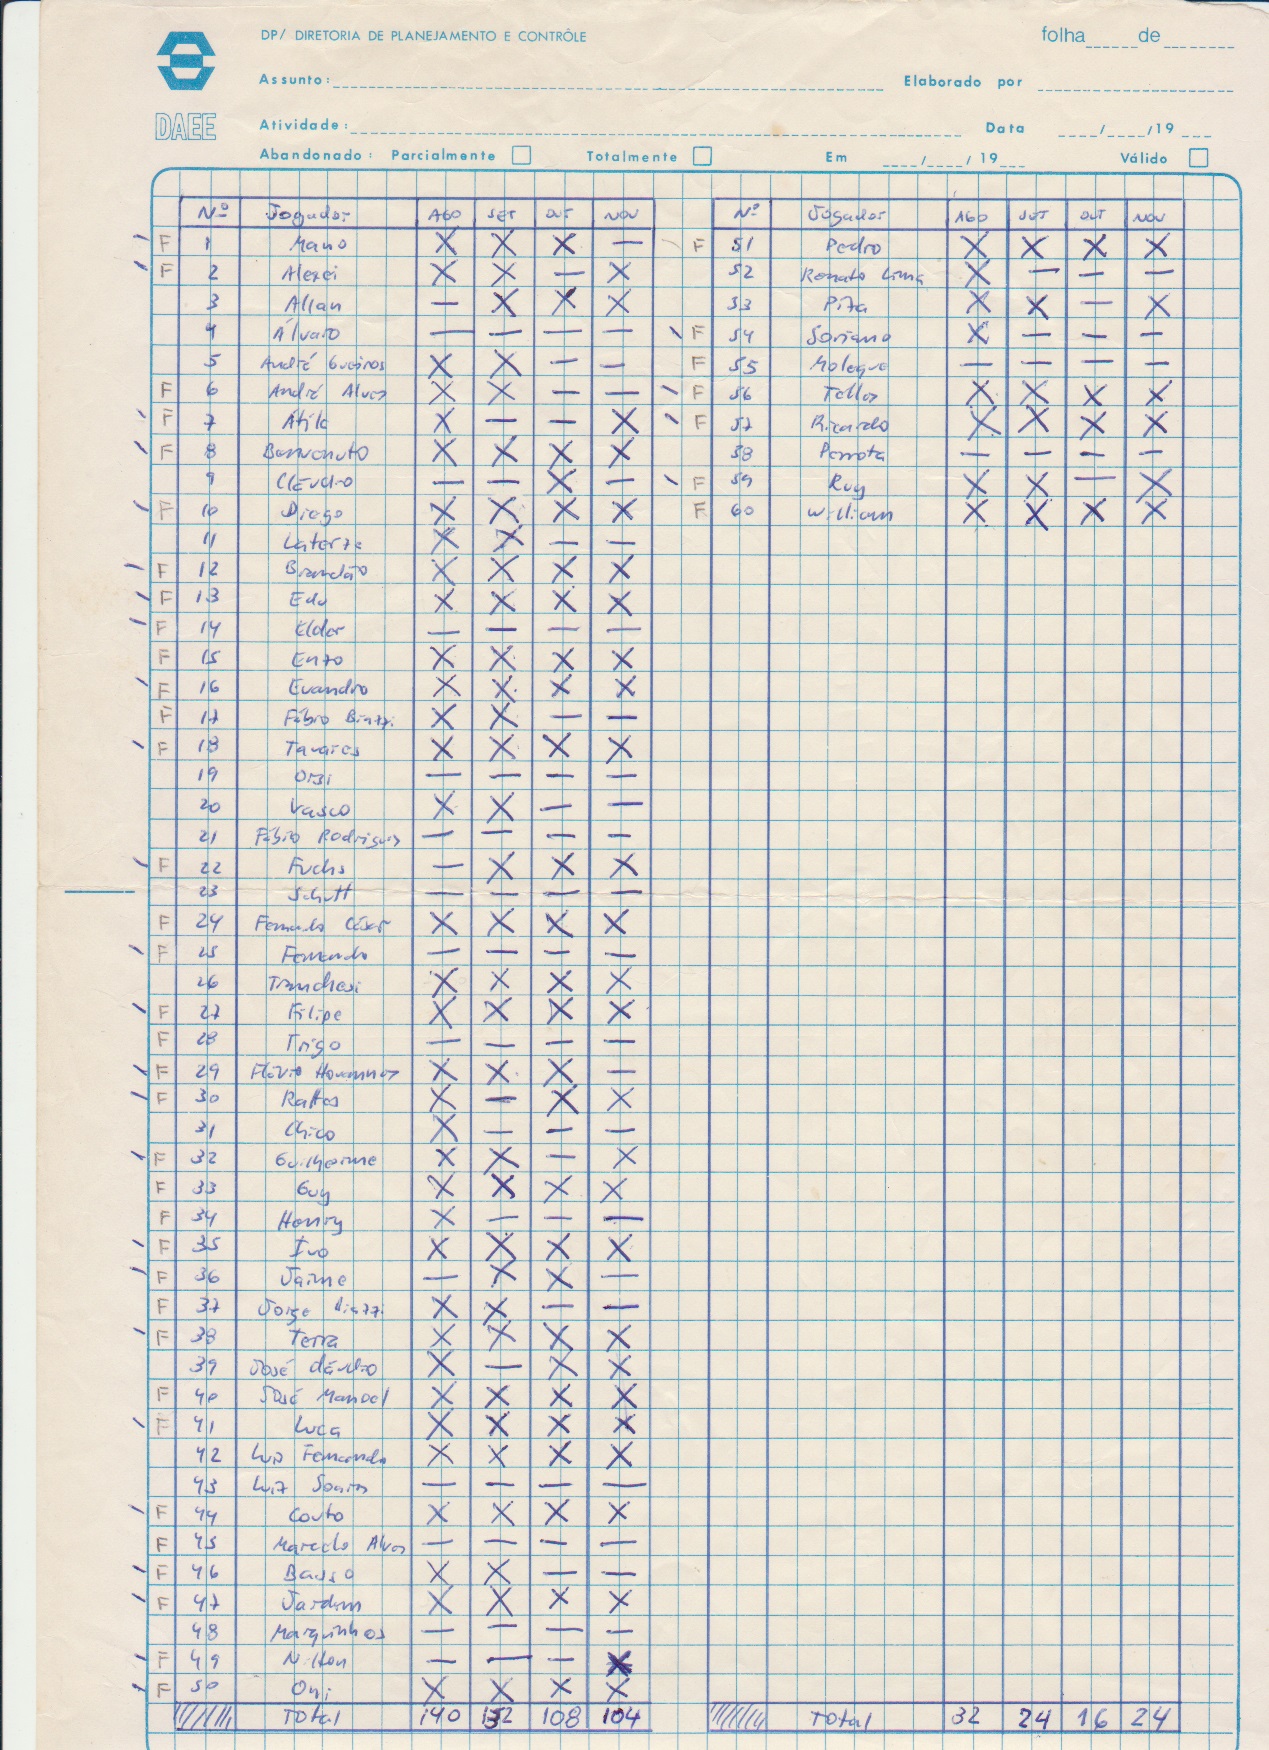 DP/ DIRETORIA DE PLANEJAMENTO E CONTRÔLE
folha______de________
Assunto:
Elaborado por
DAEE
Atividade:
Data ____/____/19 ___
Abandonado: Parcialmente Totalmente Em ____/____/ 19___ Válido
Nº Jogador AGO SET OUT NOV
F 1 Mano X X X —
F 2 Alexei X X — X
3 Allan — X X X
4 Álvaro — — — —
5 André Gueiros X X — —
F 6 André Alves X X — —
F 7 Átila X — — X
F 8 Benvenuto X X X X
9 Cláudio — — X —
F 10 Diogo X X X X
11 Laterza X X — —
F 12 Brandão X X X X
F 13 Edu X X X X
F 14 Elder — — — —
F 15 Enzo X X X X
F 16 Evandro X X X X
F 17 Fábio Biazzi X X — —
F 18 Tavares X X X X
19 Orsi — — — —
20 Vasco X X — —
21 Fábio Rodrigues — — — —
F 22 Fuchs — X X X
23 Schutt — — — —
F 24 Fernando César X X X X
F 25 Fernando — — — —
26 Tranchesi X X X X
F 27 Filipe X X X X
F 28 Trigo — — — —
F 29 Flávio X X X —
F 30 Rattes X — X X
31 Chico X — — —
F 32 Guilherme X X — X
F 33 Guy X X X X
F 34 Henry X — — —
F 35 Ivo X X X X
F 36 Jaime — X X —
F 37 Jorge Biazzi X X — —
F 38 Terra X X X X
39 José Cláudio X — X X
F 40 José Manoel X X X X
F 41 Luca X X X X
42 Luis Fernando X X X X
43 Luiz — — — —
F 44 Couto X X X X
F 45 Marcelo Alves — — — —
F 46 Basso X X — —
F 47 Jardim X X X X
48 Marquinhos — — — —
F 49 Nilton — — — X
F 50 Oni X X X X
Total 140 132 108 104
Nº Jogador AGO SET OUT NOV
F 51 Pedro X X X X
52 Renato Lima X — — —
53 Pita X X — X
F 54 Soriano X — — —
F 55 Moleque — — — —
F 56 Telles X X X X
F 57 Ricardo X X X X
58 Perrota — — — —
F 59 Ruy X X — X
F 60 William X X X X
Total 32 24 16 24